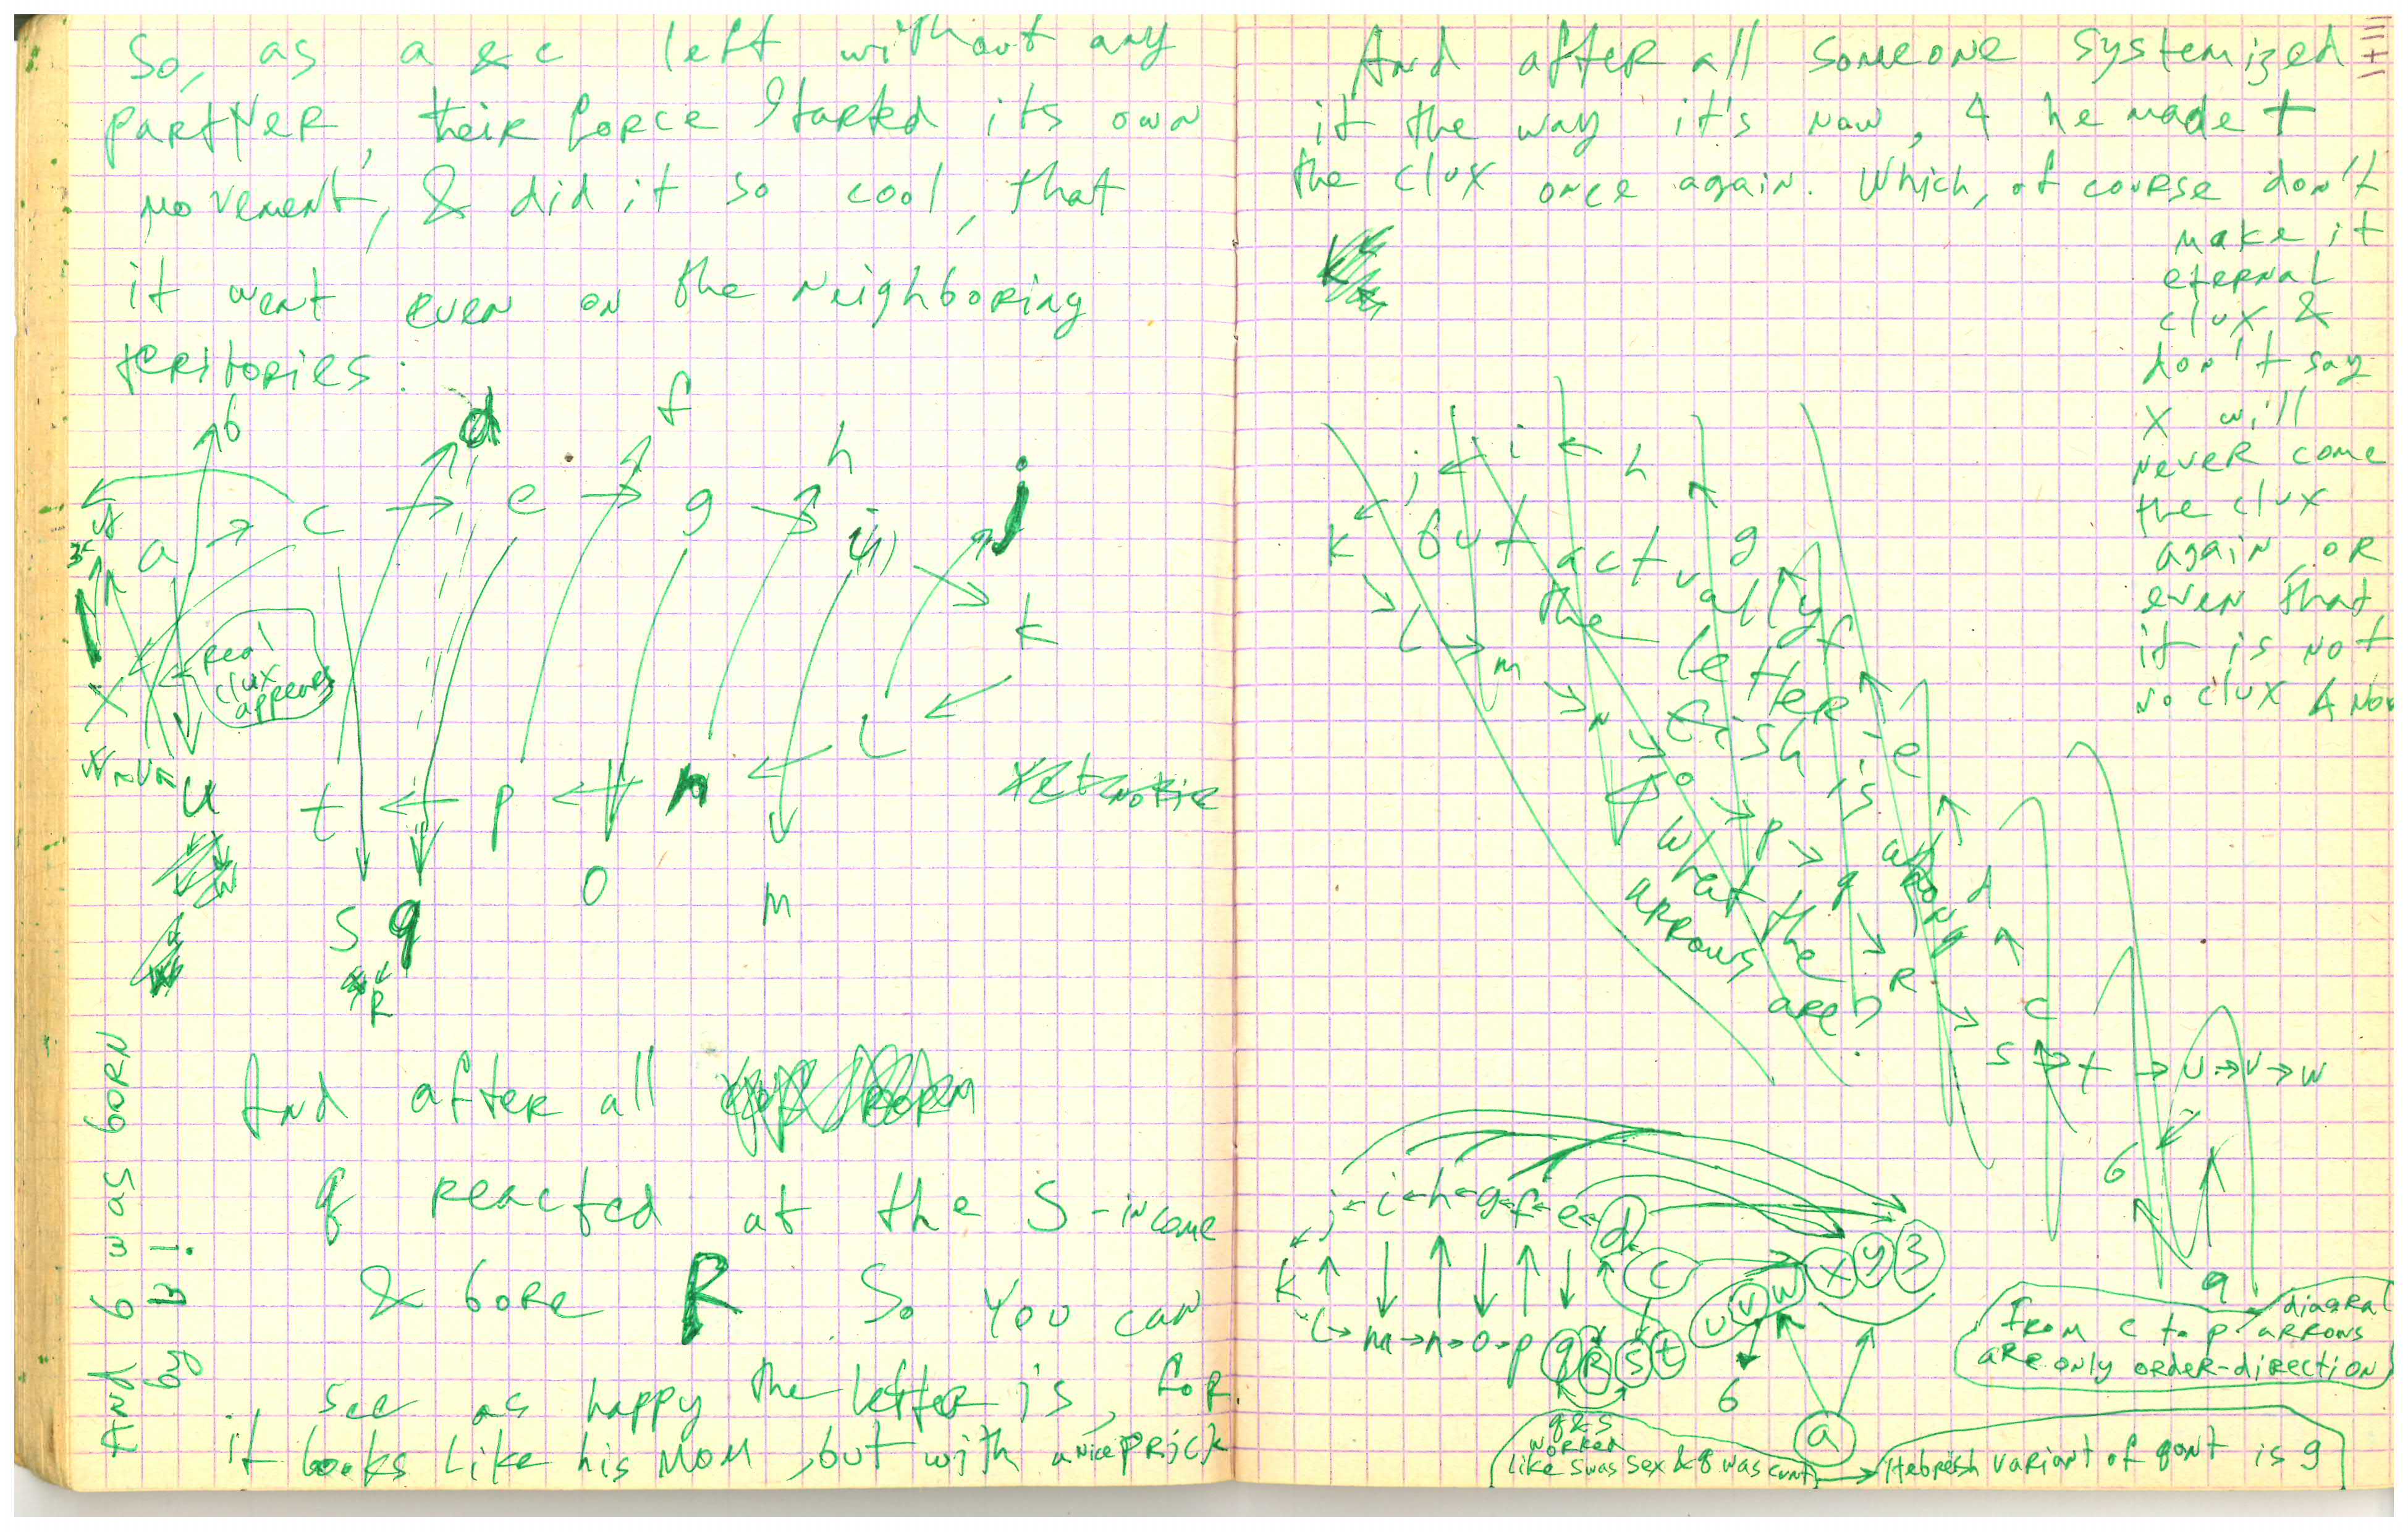 So, as a & c left without any
partner, their force started its own
movement, & did it so cool, that
it went even on the neighboring
territories:
b d f h j
a → c → e → g → i
k
real
clux
appeares
x
u t ← p ← n ← L
s q o m
R
And after all
q reacted at the S-income
& bore R. So you can
see as happy the letter is, for
it looks like his mom, but with a nice prick
And 6 was born
by
And after all someone systemized
it the way it's now, & he made t
the clux once again. Which, of course don't
make it
eternal
clux &
don't say
x will
never come
the clux
again or
even that
it is not
no clux & now
k j i h g f e d c
L m n o p q R s → t → u → v → w
6
a
But actually
the letter
fish is
among
what the
arrows
are?
j ← i ← h ← g ← f ← e ← d
k c x y 3
L → m → n → o → p q R s t u v w
6
a
From c to p diagral
arrows
are only order-direction
q & s
worked
like s was sex & q was cunt → Hebreish variant of qont is g